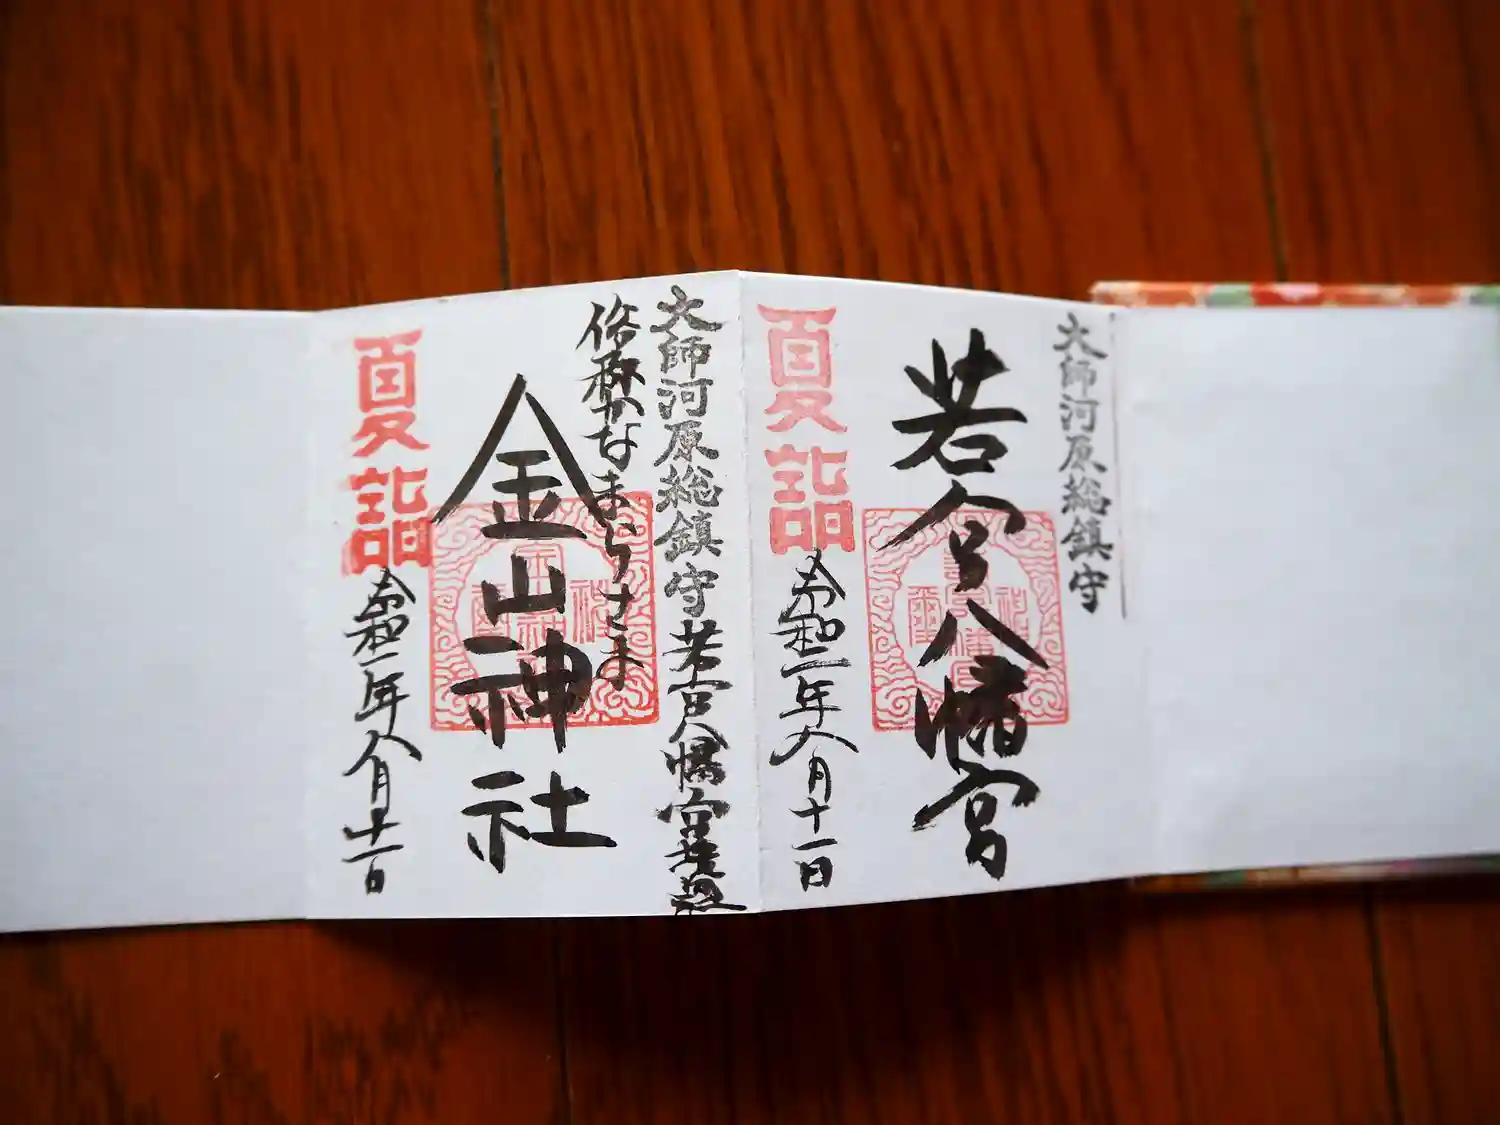 大師河原総鎮守
若宮八幡宮
夏詣
令和二年八月十一日
大師河原総鎮守若宮八幡宮境内
俗称かなまらさま
金山神社
夏詣
令和二年八月十一日